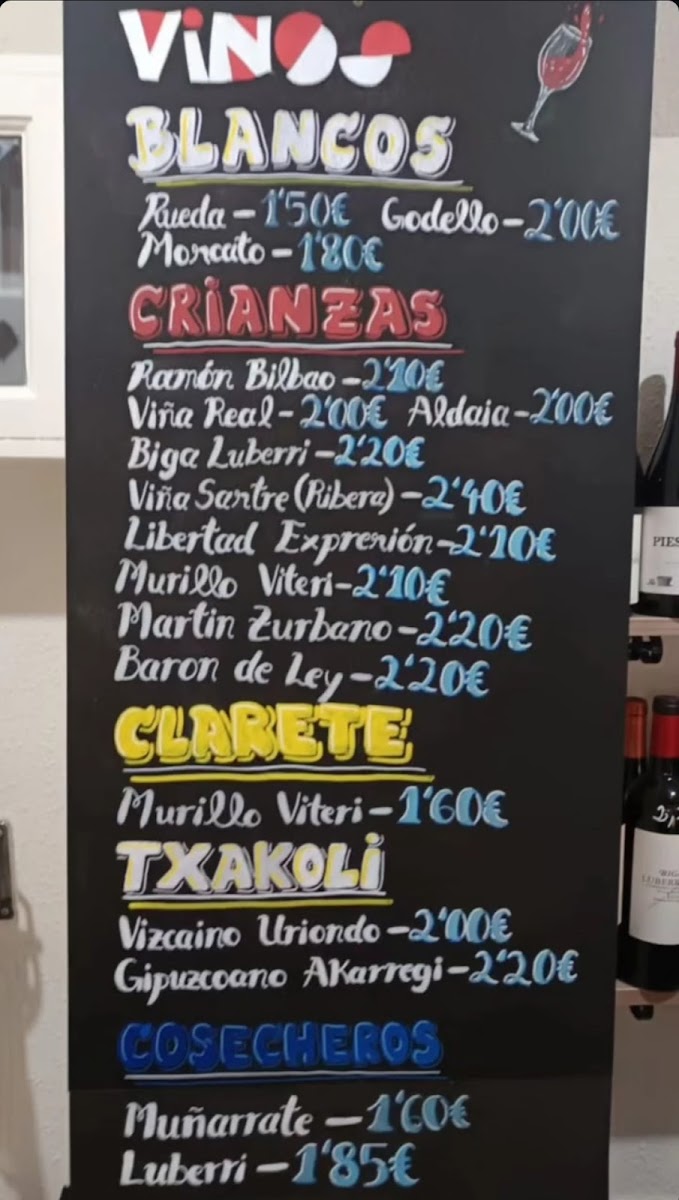 VINOS
BLANCOS
Rueda – 1'50€ Godello – 2'00€
Morcato – 1'80€
CRIANZAS
Ramón Bilbao – 2'10€
Viña Real – 2'00€ Aldaia – 2'00€
Biga Luberri – 2'20€
Viña Sastre (Ribera) – 2'40€
Libertad Expresión – 2'10€
Murillo Viteri – 2'10€
Martin Zurbano – 2'20€
Baron de Ley – 2'20€
CLARETE
Murillo Viteri – 1'60€
TXAKOLI
Vizcaino Uriondo – 2'00€
Gipuzcoano Akarregi – 2'20€
COSECHEROS
Muñarrate – 1'60€
Luberri – 1'85€
PIES
BIGA
LUBERR